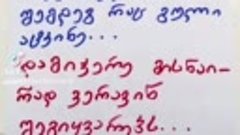 შემდეგ რაც გული
ატკინე...
დამიჯერე მისნაი-
რად ვერავინ
შეგიყვარებს...